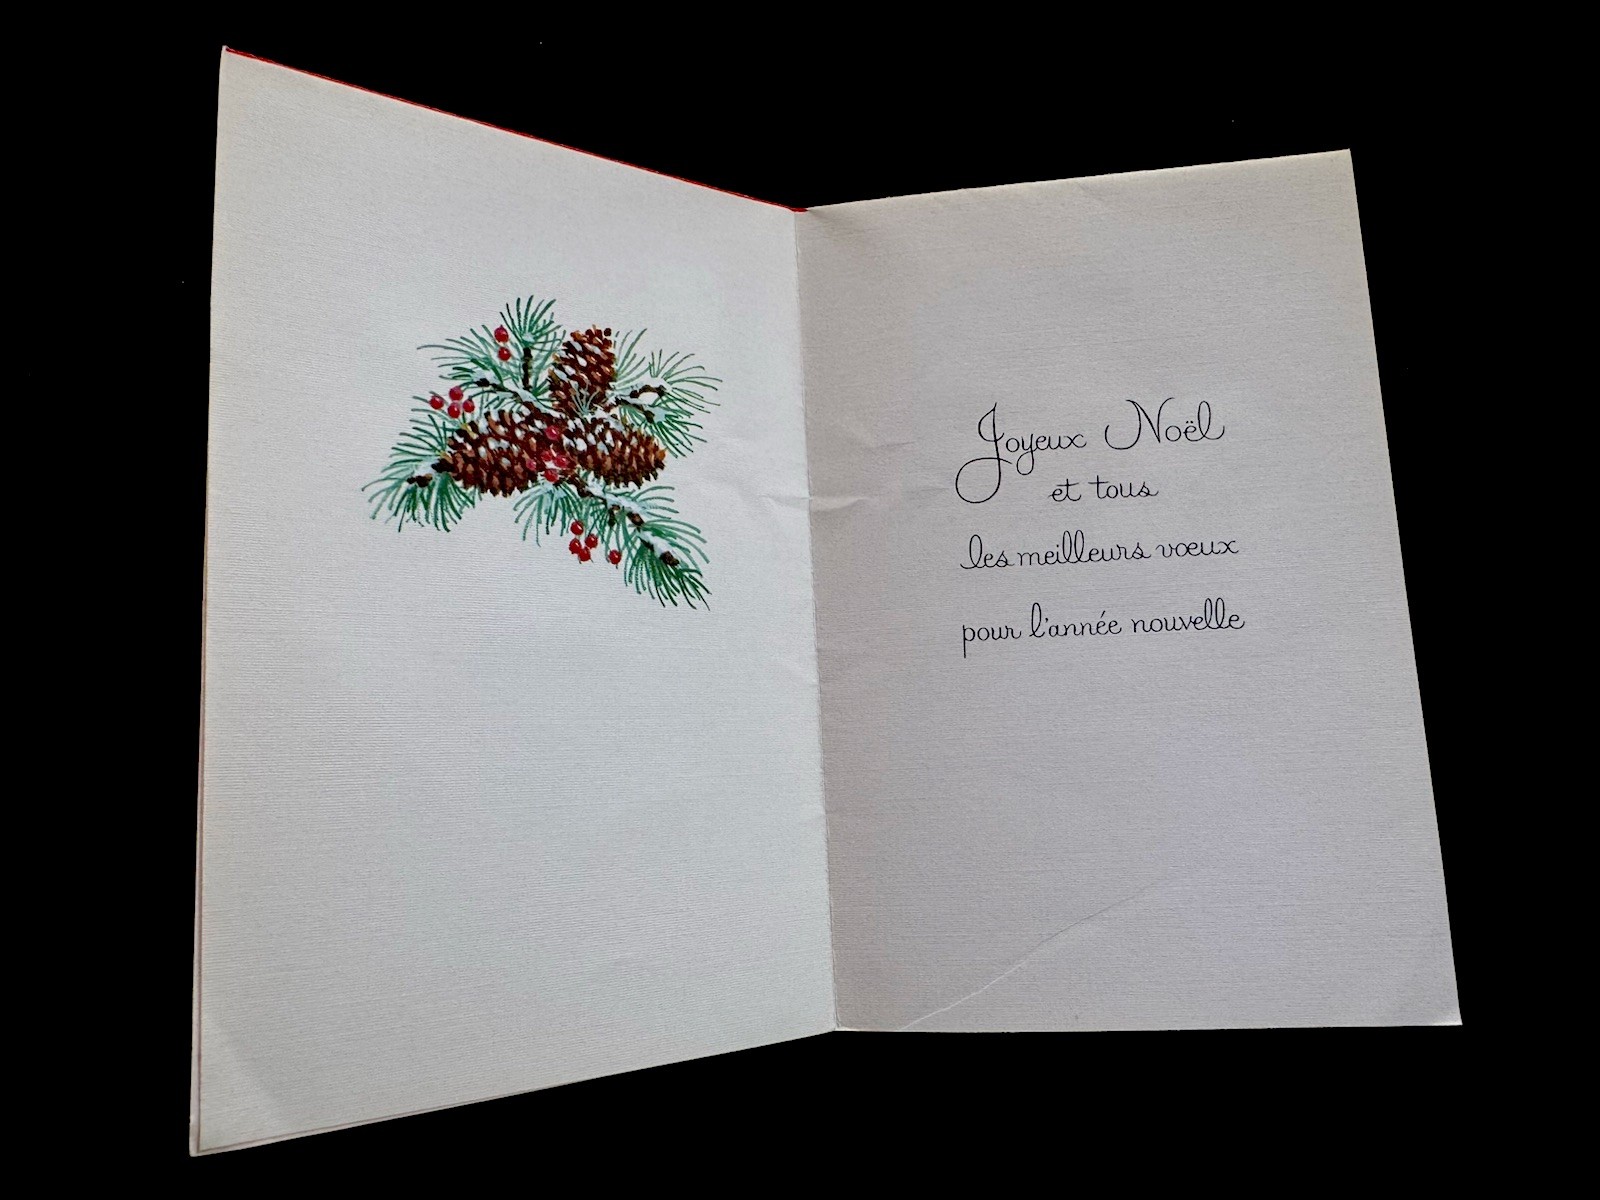 Joyeux Noël
et tous
les meilleurs vœux
pour l'année nouvelle